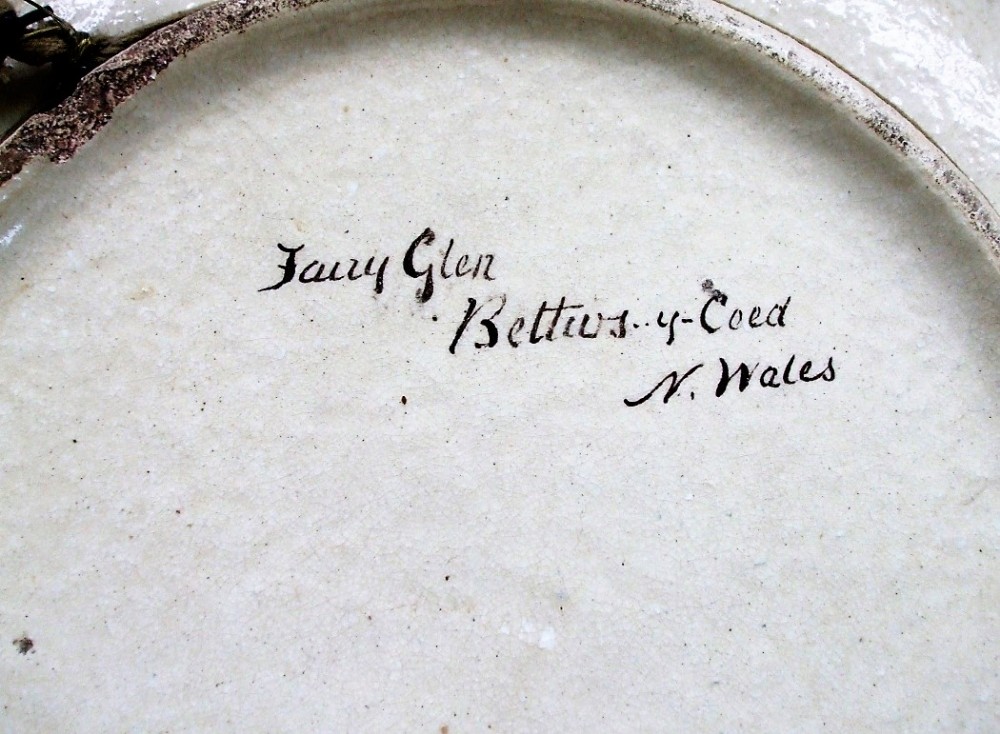 Fairy Glen
Bettws-y-Coed
N. Wales